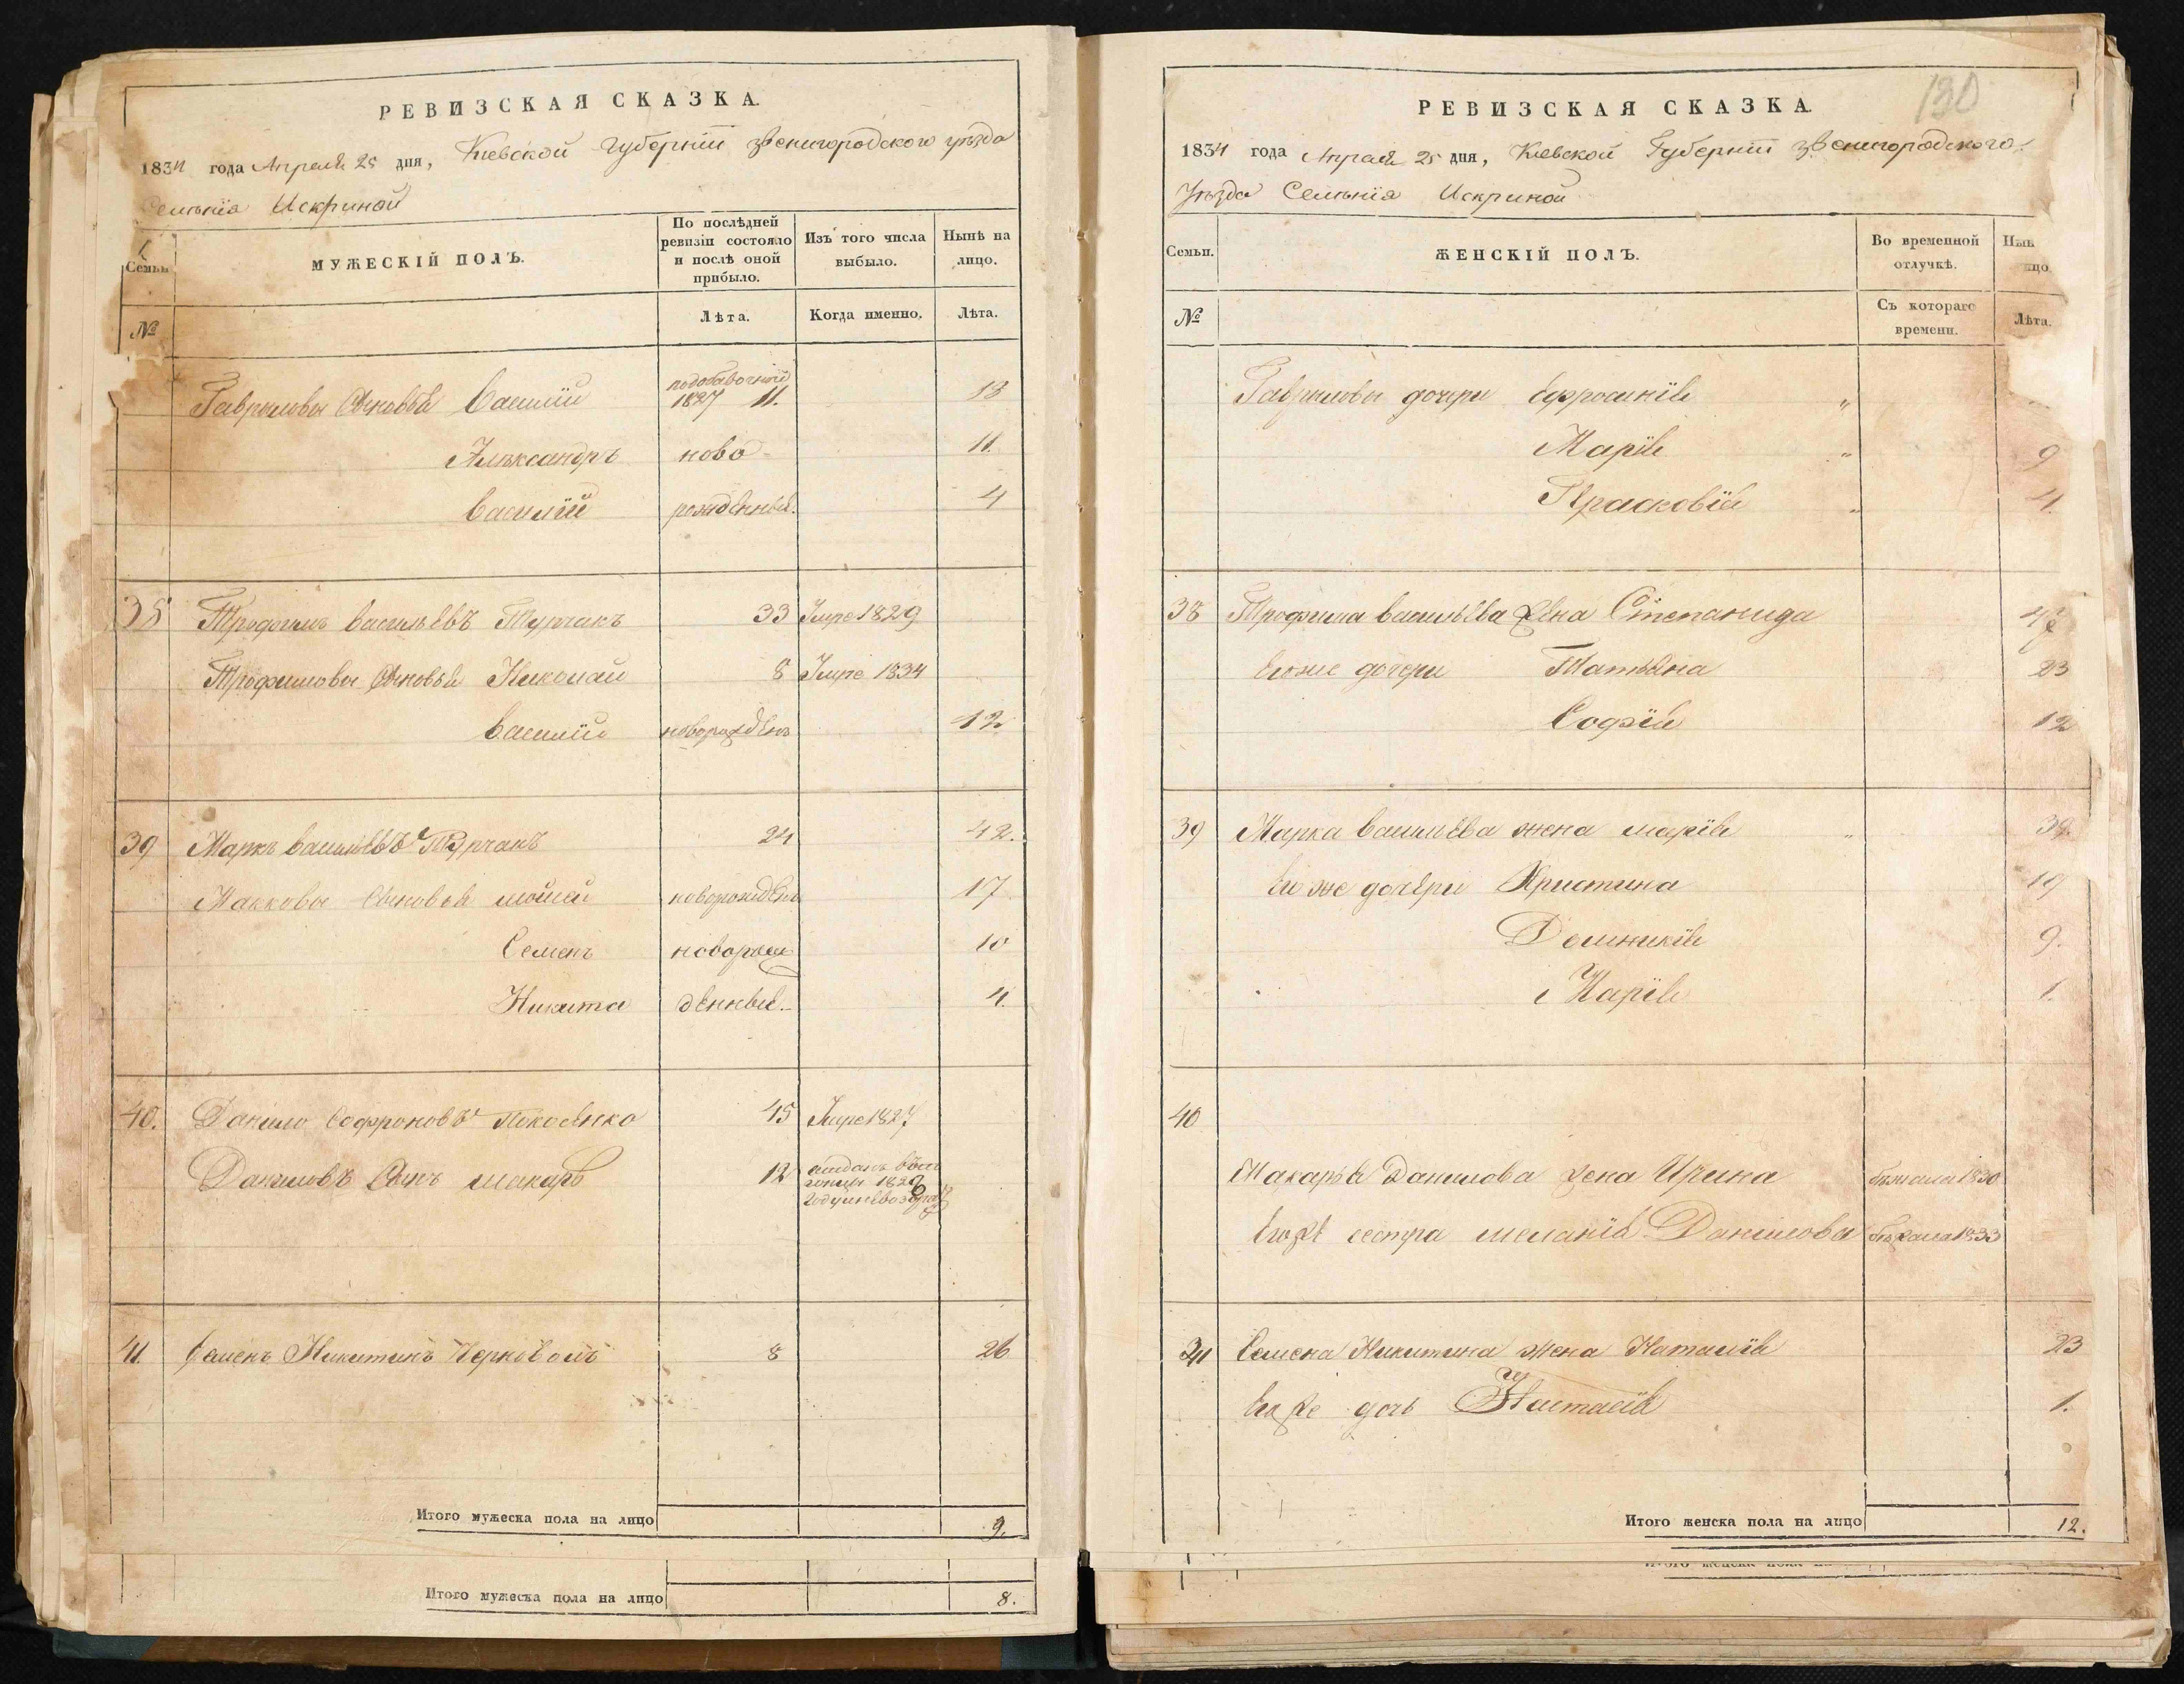 РЕВИЗСКАЯ СКАЗКА.
1834 года Апреля 25 дня, Киевской Губернїи звенигородского уѣзда
Селѣнїя Искриной
Семьи
МУЖЕСКІЙ ПОЛЪ.
По послѣдней ревизіи состояло и послѣ оной прибыло.
Изъ того числа выбыло.
Нынѣ на лицо.
№
Лѣта.
Когда именно.
Лѣта.
Гавриловы Сыновья Василїй 1827 11. 18
Алѣксандръ ново 11.
Василїй рожденные. 4
38 Трофимъ васильевъ Турчакъ 33 Умре 1829
Трофимовы Сыновья Николай 8 Умре 1834
Василїй новорожденъ 12
39 Маркъ васильевъ Турчакъ 24 42.
Марковы Сыновья мойсей новорожденъ 17
Семенъ новорож 10
Никита денные. 4.
40. Данило Софроновъ 45 Умре 1827
Даниловъ Сынъ макаръ 12
41. Семенъ Никитинъ 8 26
Итого мужеска пола на лицо 9.
Итого мужеска пола на лицо 8.
130
РЕВИЗСКАЯ СКАЗКА.
1834 года Апреля 25 дня, Киевской Губернїи звенигородского
Уѣзда Селѣнїя Искриной
Семьи.
ЖЕНСКІЙ ПОЛЪ.
Во временной отлучкѣ.
Нын
лицо
№
Съ котораго времени.
Лѣта.
Гавриловы дочери Ефросинїя "
Марїя " 9
Прасковїя " 4.
38 Трофима васильева жена Степанида
Егоже дочери Татьяна 23
Софїя 12
39 Марка васильева жена марїя " 39.
Его же дочери Христина 19
Домникїя 9.
Марїя 1.
40
Макара Данилова жена Ирина бежала 1830
Егоже сестра меланїя Данилова бежала 1833
41 Семена Никитина жена Наталїя 23
Егоже дочь Настасїя 1.
Итого женска пола на лицо 12.